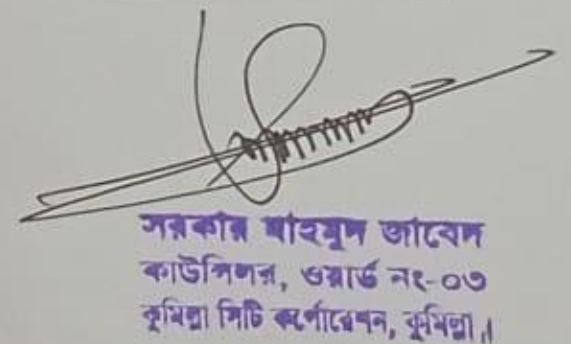 সরকার মাহমুদ জাবেদ
কাউন্সিলর, ওয়ার্ড নং-০৩
কুমিল্লা সিটি কর্পোরেশন, কুমিল্লা।